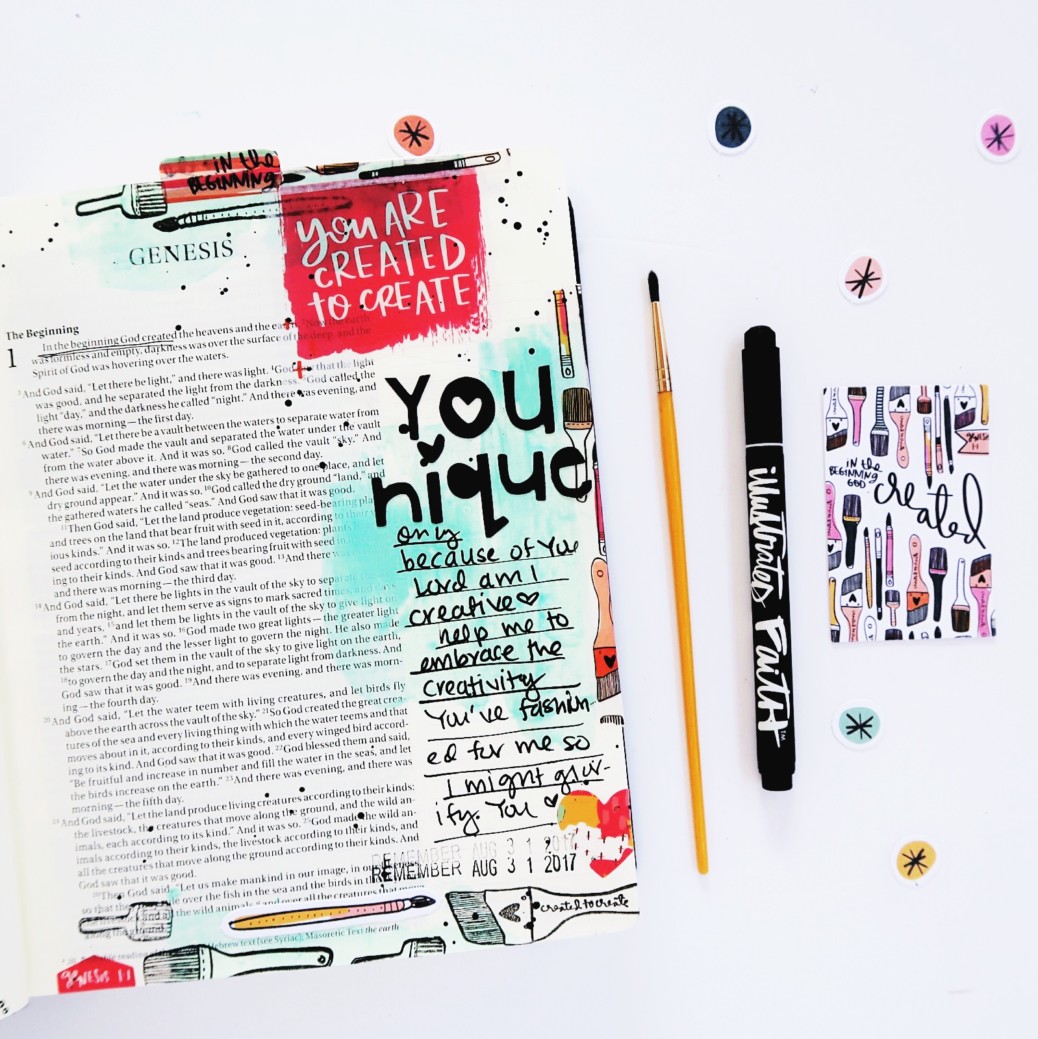 in the
BEGINNING
GENESIS
you ARE
CREATED
to CREATE
The Beginning
1 In the beginning God created the heavens and the earth. ²Now the earth
was formless and empty, darkness was over the surface of the deep, and the
Spirit of God was hovering over the waters.
³And God said, "Let there be light," and there was light. ⁴God that the light
was good, and he separated the light from the darkness. ⁵God called the
light "day," and the darkness he called "night." And there was evening, and
there was morning—the first day.
⁶And God said, "Let there be a vault between the waters to separate water from
water." ⁷So God made the vault and separated the water under the vault
from the water above it. And it was so. ⁸God called the vault "sky." And
there was evening, and there was morning—the second day.
⁹And God said, "Let the water under the sky be gathered to one place, and let
dry ground appear." And it was so. ¹⁰God called the dry ground "land," and
the gathered waters he called "seas." And God saw that it was good.
¹¹Then God said, "Let the land produce vegetation: seed-bearing plants
and trees on the land that bear fruit with seed in it, according to their var-
ious kinds." And it was so. ¹²The land produced vegetation: plants
seed according to their kinds and trees bearing fruit with seed in
ing to their kinds. And God saw that it was good. ¹³And there w
and there was morning—the third day.
¹⁴And God said, "Let there be lights in the vault of the sky to separate
from the night, and let them serve as signs to mark sacred times, and days
and years, ¹⁵and let them be lights in the vault of the sky to give light on
the earth." And it was so. ¹⁶God made two great lights—the greater light
to govern the day and the lesser light to govern the night. He also made
the stars. ¹⁷God set them in the vault of the sky to give light on the earth,
¹⁸to govern the day and the night, and to separate light from darkness. And
God saw that it was good. ¹⁹And there was evening, and there was morn-
ing—the fourth day.
²⁰And God said, "Let the water teem with living creatures, and let birds fly
above the earth across the vault of the sky." ²¹So God created the great crea-
tures of the sea and every living thing with which the water teems and that
moves about in it, according to their kinds, and every winged bird accord-
ing to its kind. And God saw that it was good. ²²God blessed them and said,
"Be fruitful and increase in number and fill the water in the seas, and let
the birds increase on the earth." ²³And there was evening, and there was
morning—the fifth day.
²⁴And God said, "Let the land produce living creatures according to their kinds:
the livestock, the creatures that move along the ground, and the wild an-
imals, each according to its kind." And it was so. ²⁵God made the wild an-
imals according to their kinds, the livestock according to their kinds, and
all the creatures that move along the ground according to their kinds. And
God saw that it was good.
²⁶Then God said, "Let us make mankind in our image, in our
so that they rule over the fish in the sea and the birds in
the wild animals, and over all the creatures that move
along the ground
Hebrew text (see Syriac); Masoretic Text the earth
genesis 1:1
You
nique
only
because of You
Lord am I
creative
help me to
embrace the
creativity
You've fashion-
ed for me so
I might glor-
ify. You
REMEMBER AUG 3 1 2017
REMEMBER AUG 3 1 2017
created to create
illustrated Faith™
in the
BEGINNING
GOD
created
genesis
1:1